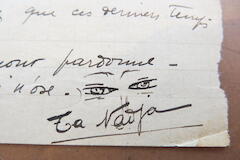 que ces derniers temps
pardonne -
n'ose.)
Ta Nadja